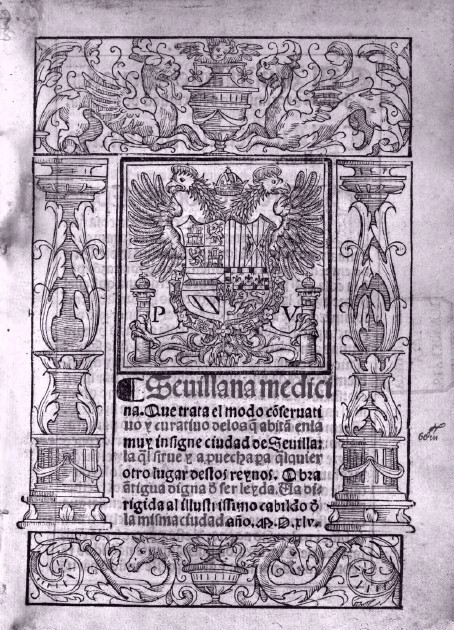 P V
Seuillana medici
na. Que trata el modo cōseruati
uo y curatiuo delos q̄ abitā enla
muy insigne ciudad de Seuilla:
la q̄l sirue y apuecha pa q̄lquier
otro lugar destos reynos. Obra
ātigua digna d̄ ser leyda. Va di
rigida al illustrissimo cabildo d̄
la misma ciudad año. M.D.xlv.